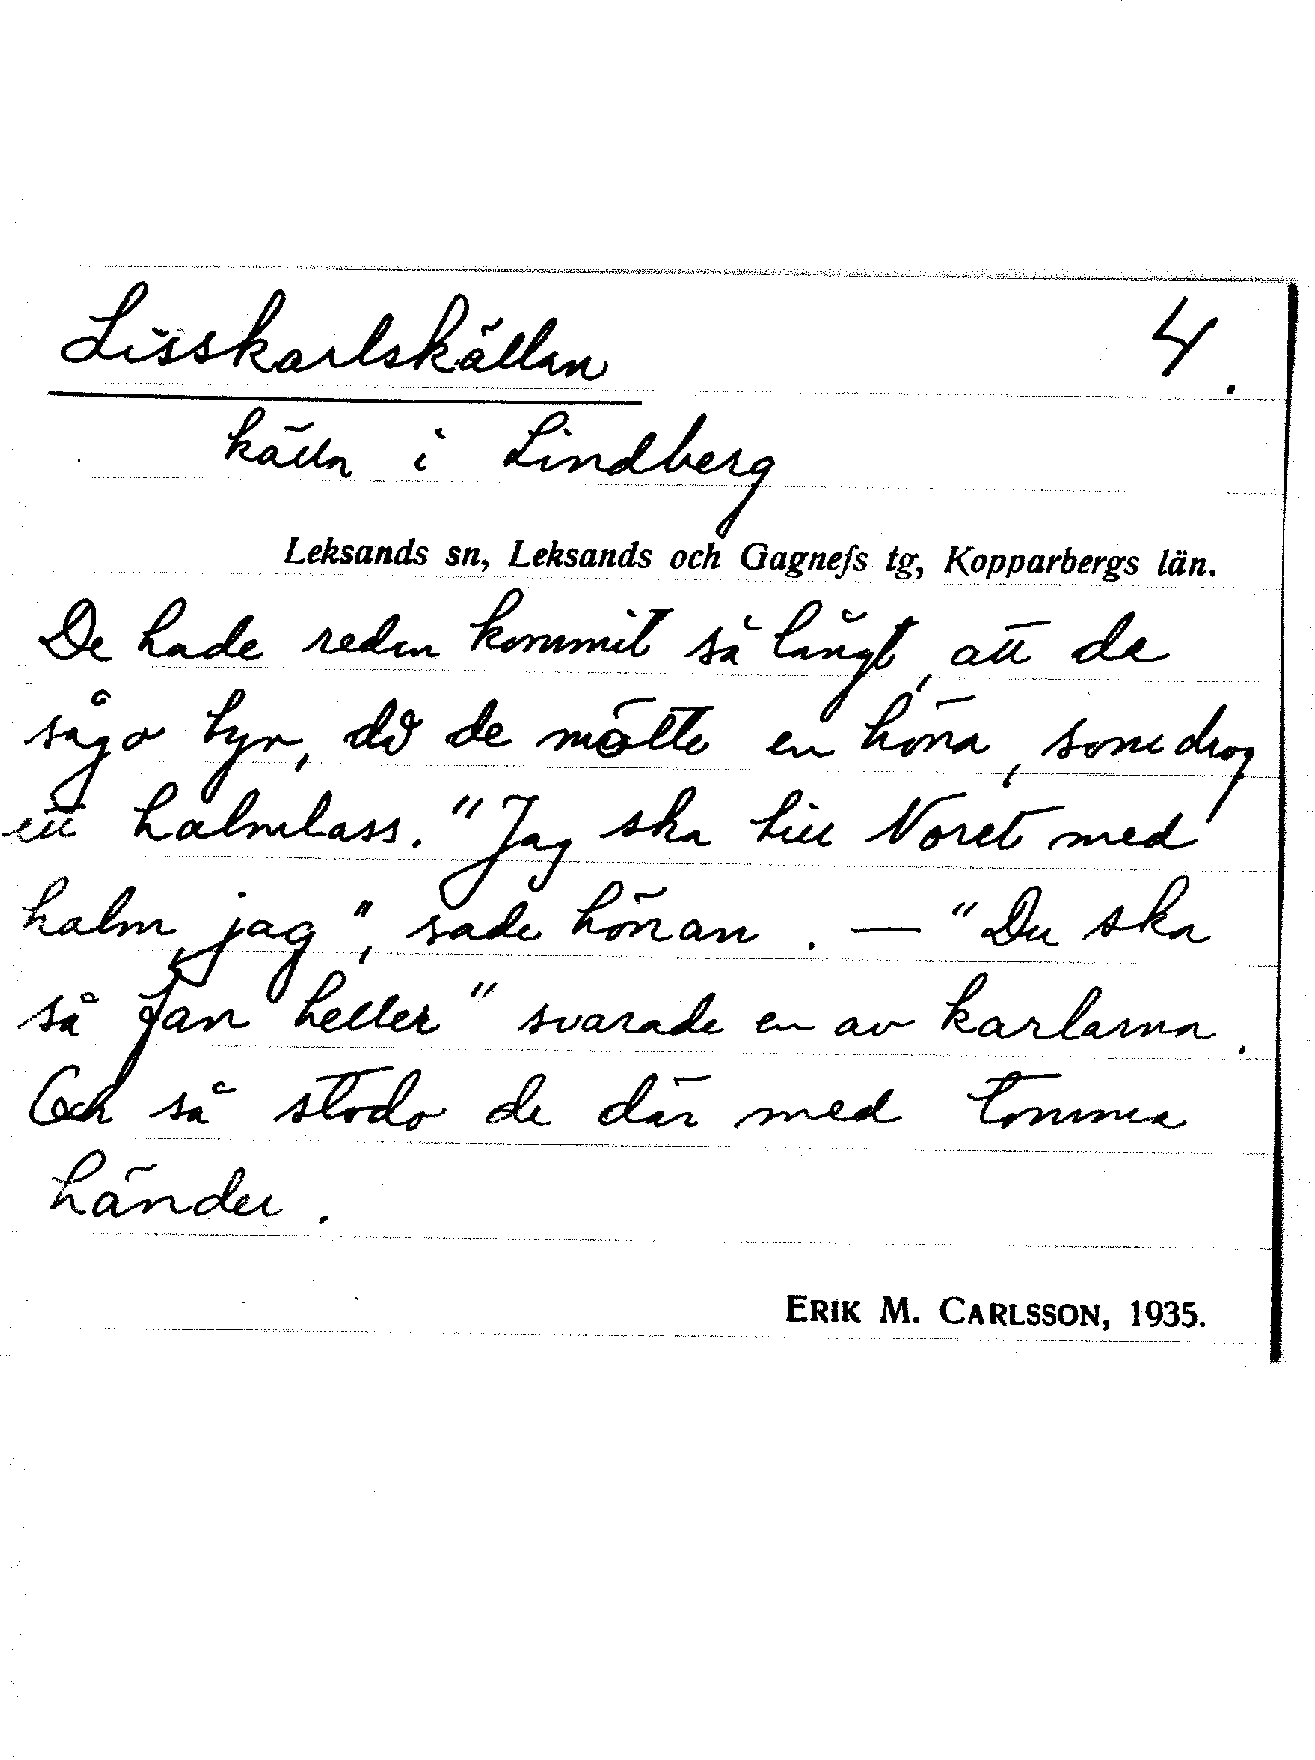 Lisskarlskällan 4.
källa i Lindberg
Leksands sn, Leksands och Gagnefs tg, Kopparbergs län.
De hade redan kommit så långt, att de
sågo byn, då de mötte en höna, som drog
ett halmlass. "Jag ska till Noret med
halm, jag", sade hönan. — "Du ska
så fan heller" svarade en av karlarna.
Och så stodo de där med tomma
händer.
ERIK M. CARLSSON, 1935.